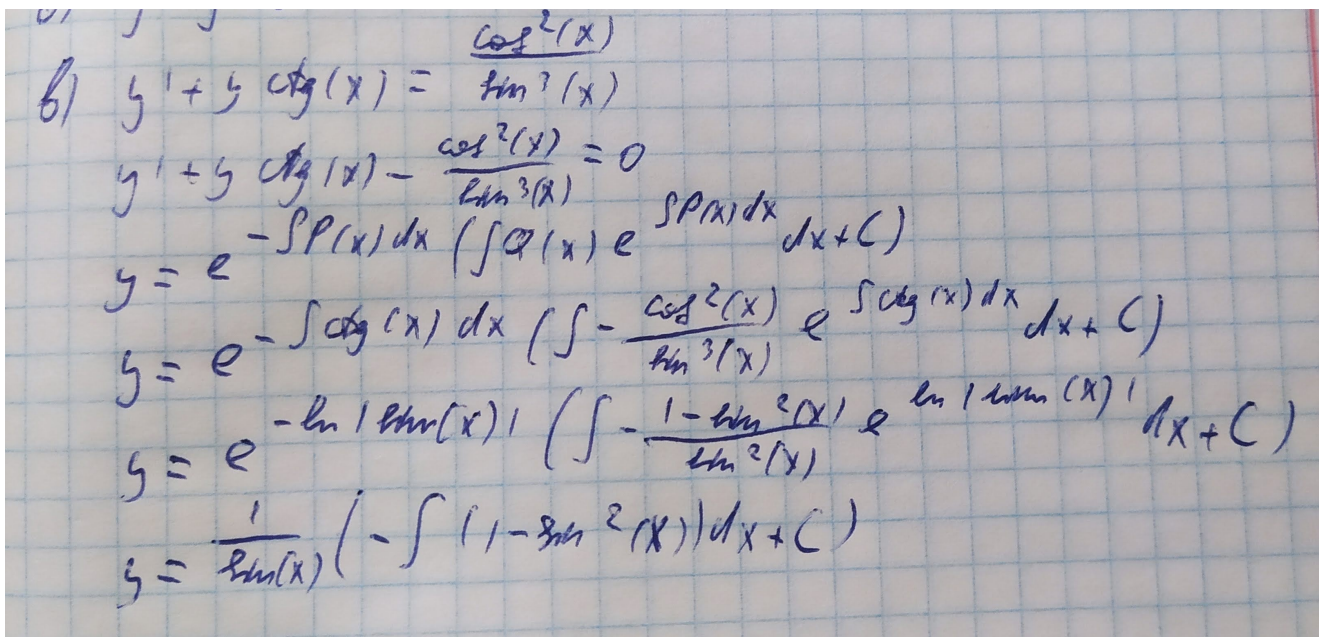 в) y' + y ctg(x) = cos²(x) / sin³(x)
y' + y ctg(x) - cos²(x) / sin³(x) = 0
y = e^(-∫P(x)dx) (∫Q(x) e^(∫P(x)dx) dx + C)
y = e^(-∫ctg(x)dx) (∫ - cos²(x) / sin³(x) e^(∫ctg(x)dx) dx + C)
y = e^(-ln|sin(x)|) (∫ - 1 - sin²(x) / sin²(x) e^(ln|sin(x)|) dx + C)
y = 1 / sin(x) (-∫(1 - sin²(x))dx + C)